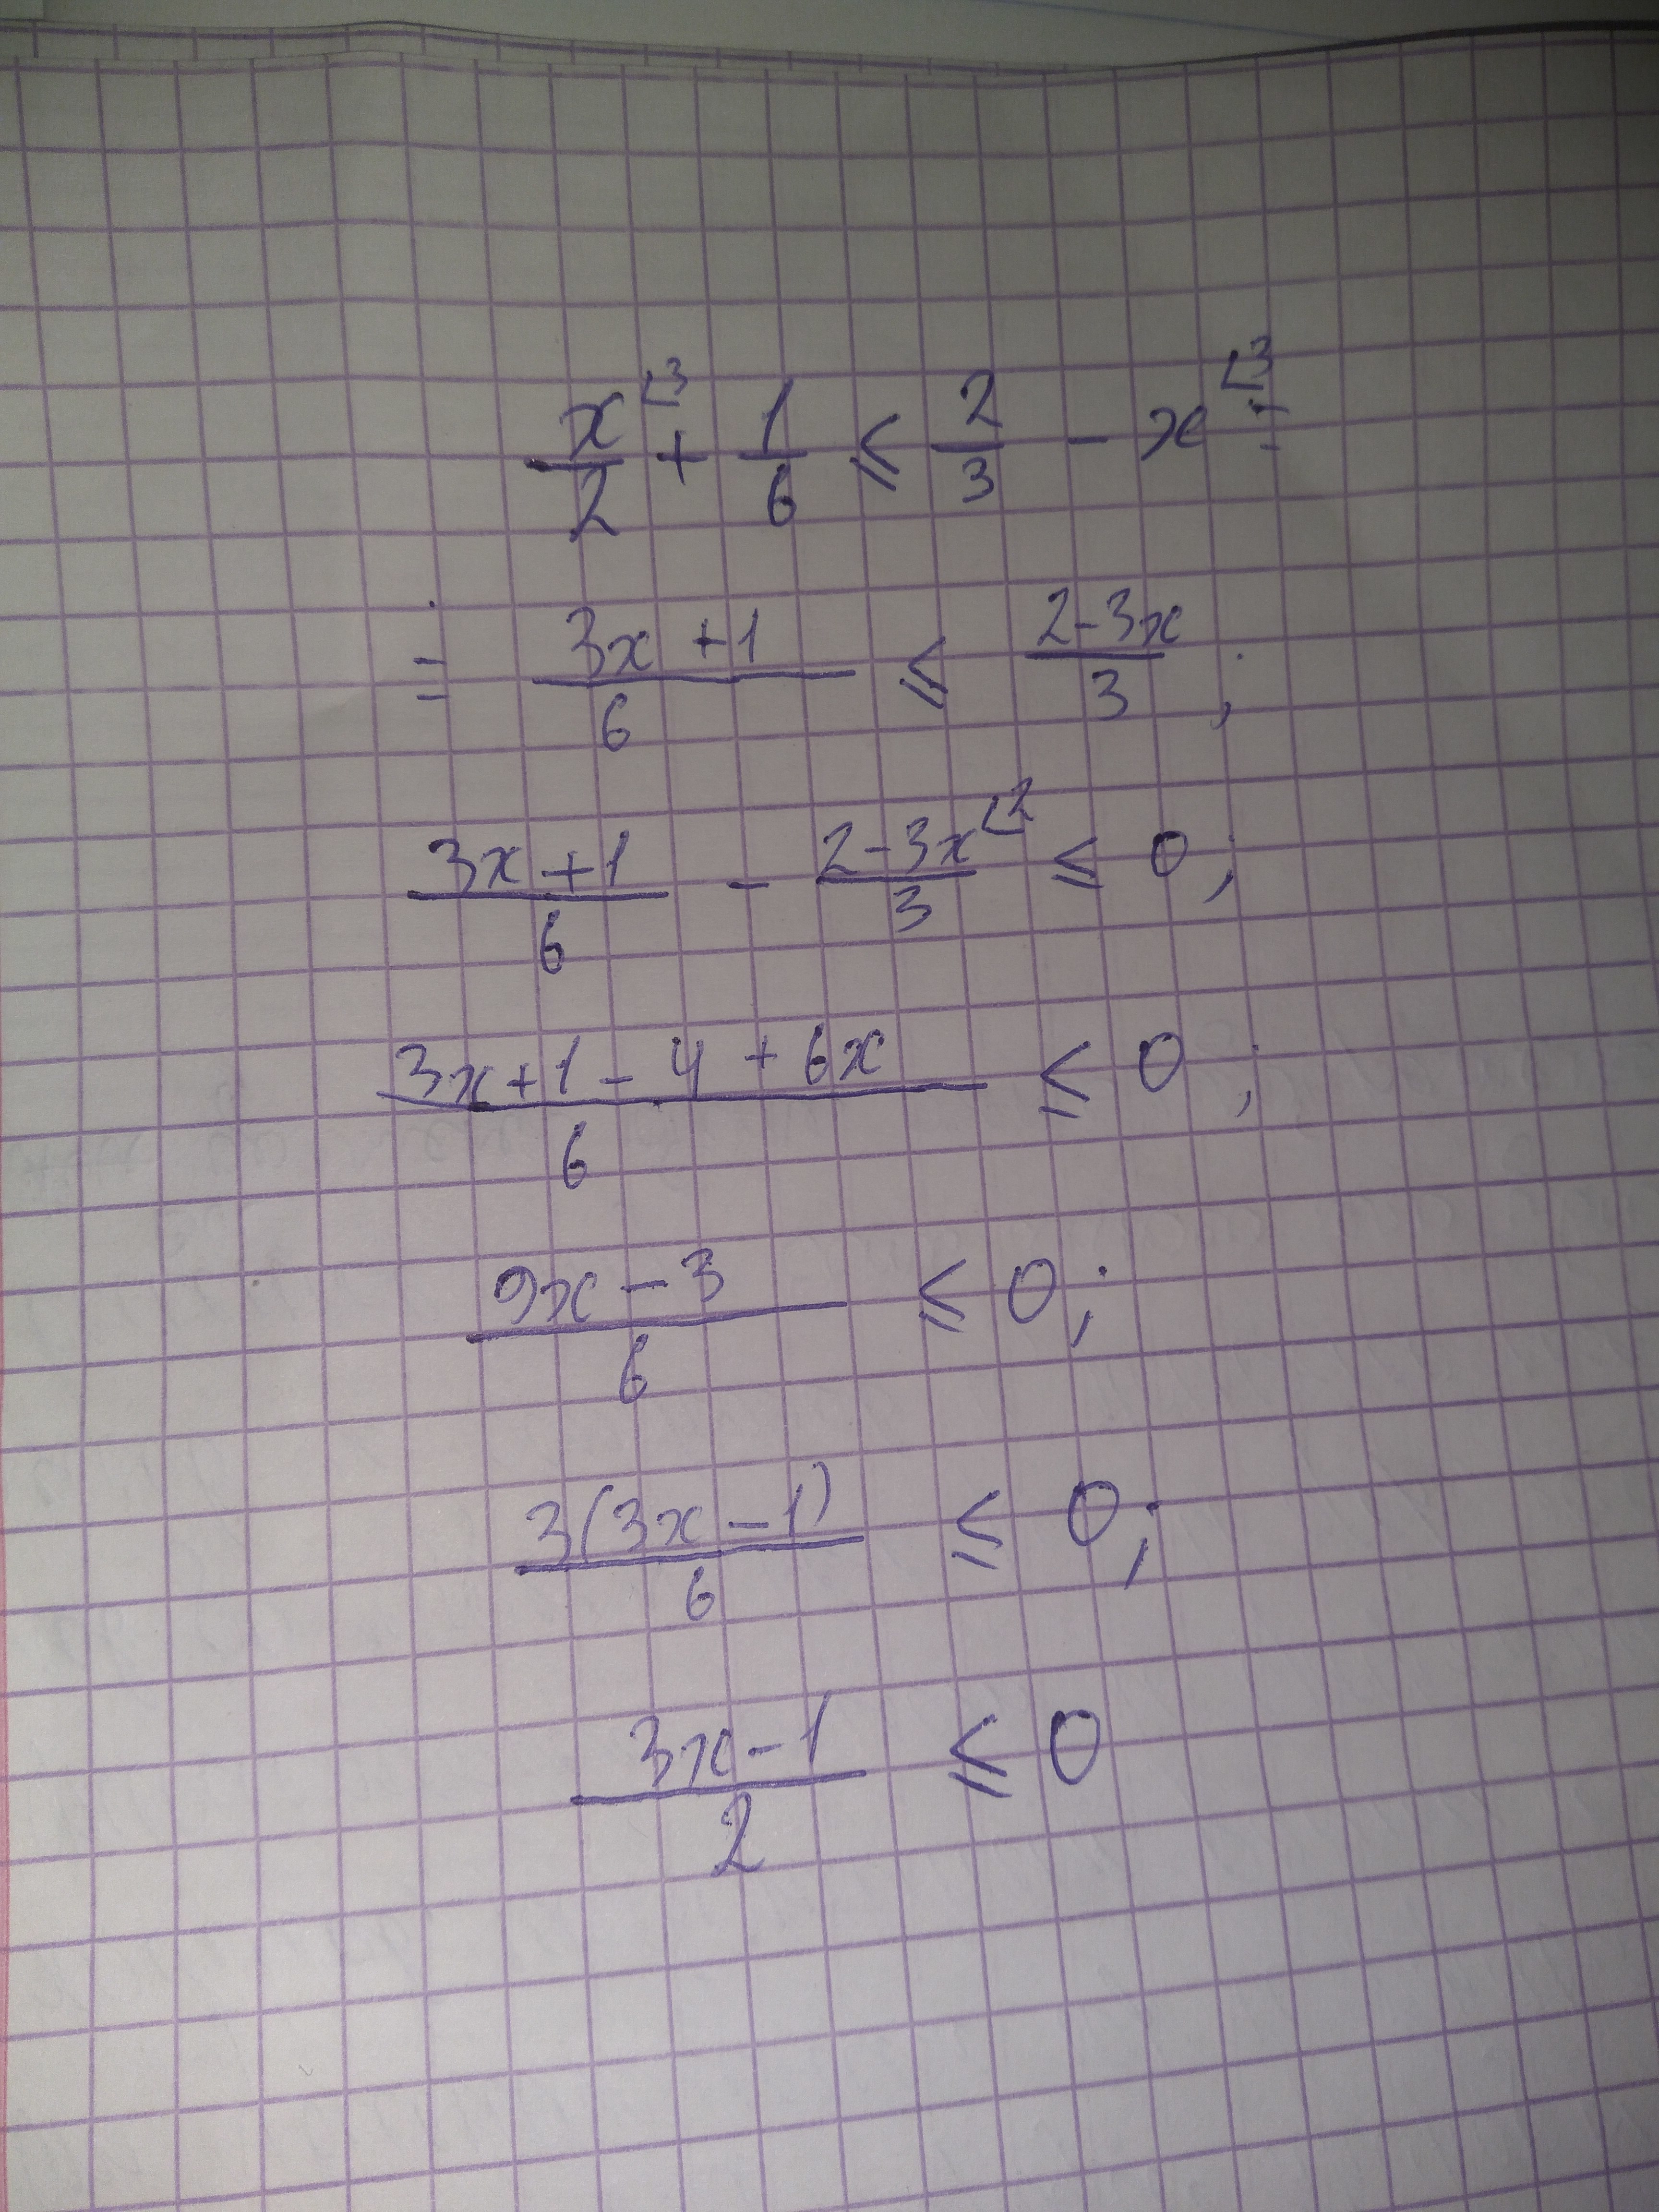 x/2 ∠3 + 1/6 ≤ 2/3 - x ∠3 =
= (3x + 1)/6 ≤ (2 - 3x)/3 ;
(3x + 1)/6 - (2 - 3x)/3 ∠2 ≤ 0 ;
(3x + 1 - 4 + 6x)/6 ≤ 0 ;
(9x - 3)/6 ≤ 0 ;
3(3x - 1)/6 ≤ 0 ;
(3x - 1)/2 ≤ 0